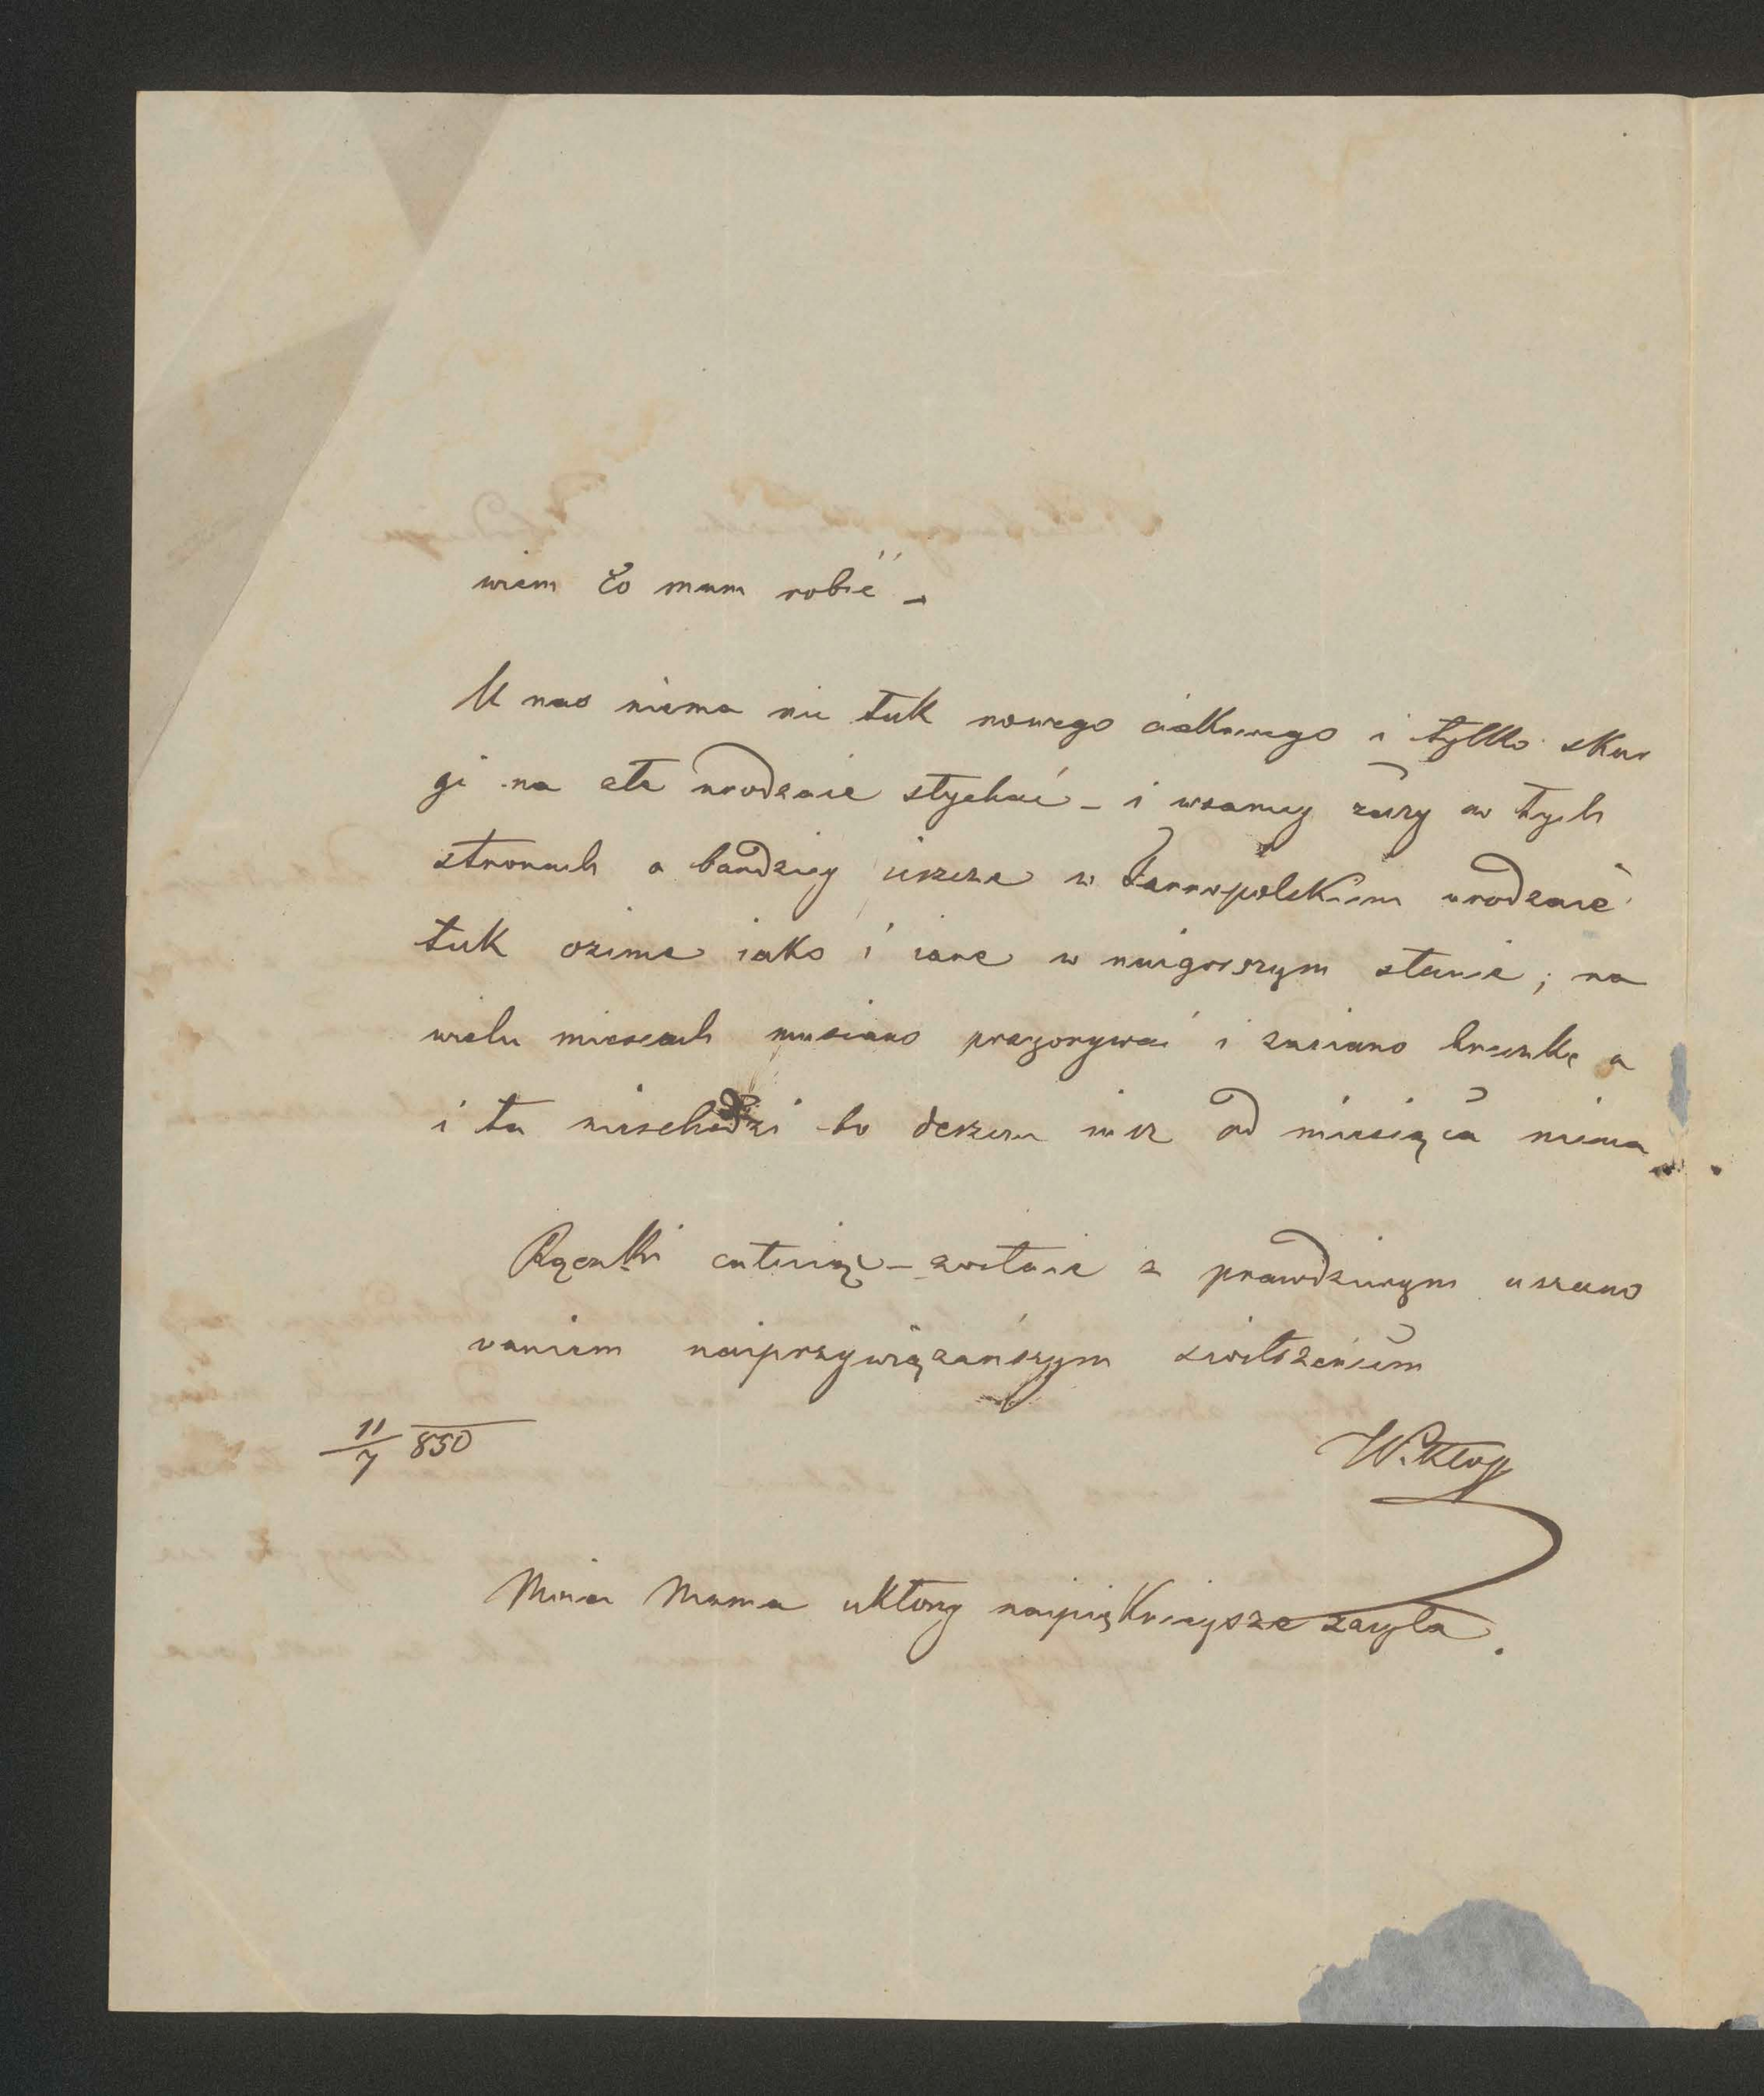 wiem co mam robić –
U nas niema nic tak nowego ciekawego i tylko skar
gi na złe urodzaie słychać – i w samey rzeczy w tych
stronach a bardziey ieszcze w Tarnopolskiem urodzaie
tak ozime iako i iare w naigorszym stanie; na
wielu miescach musiano przeorywać i zasiano hreczkę a
i ta nieschodzi bo deszczu iuż od miesiąca niema
Rączki całuiąc – zostaie z prawdziwym uszano
waniem naiprzywiązańszym
11/7 850
Moia Mama ukłony naipięknieysze zasyła.